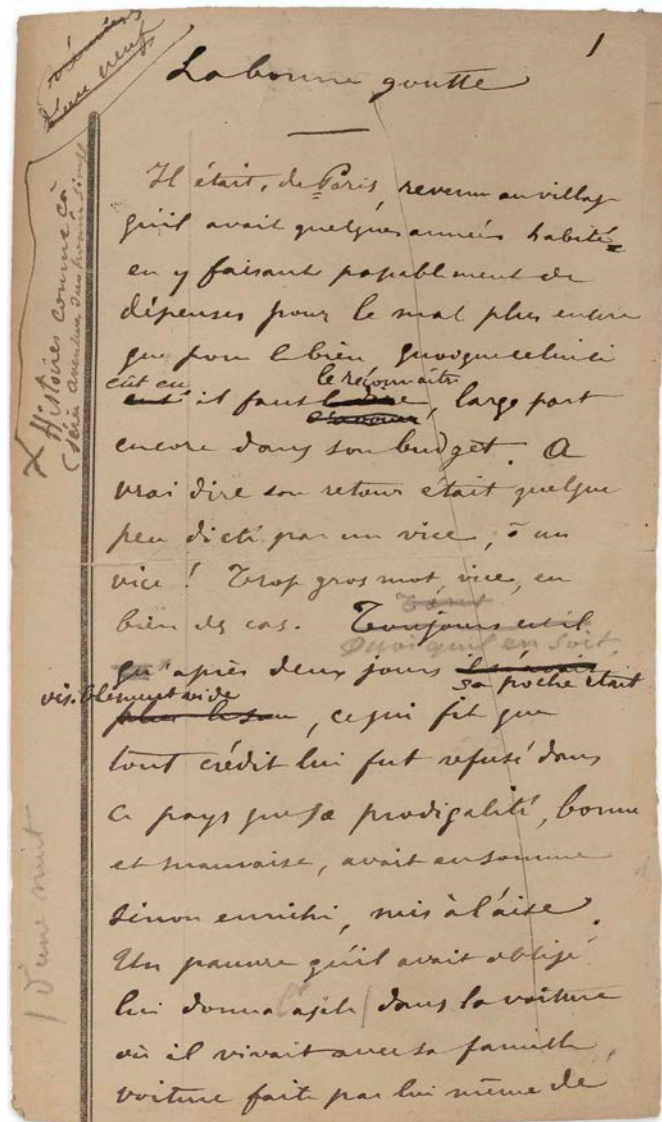 1
La bonne goutte
Il était, de Paris, revenu au village
qu'il avait quelques années habité
en y faisant passablement de
dépenses pour le mal plus encore
que pour le bien quoique celui ci
eût eu le reconnaître
il faut le dire, large part
encore dans son budget. A
vrai dire son retour était quelque
peu dicté par un vice, ô un
vice ! Trop gros mot, vice, en
bien des cas. Toujours est il
Quoi qu'il en soit,
qu'après deux jours
sa poche était
visiblement vide
, ce qui fit que
tout crédit lui fut refusé dans
ce pays que sa prodigalité, bonne
et mauvaise, avait en somme
sinon enrichi, mis à l'aise.
Un pauvre qu'il avait obligé
lui donna asile dans la voiture
où il vivait avec sa famille,
voiture faite par lui même de
Histoires comme ça
d'une nuit